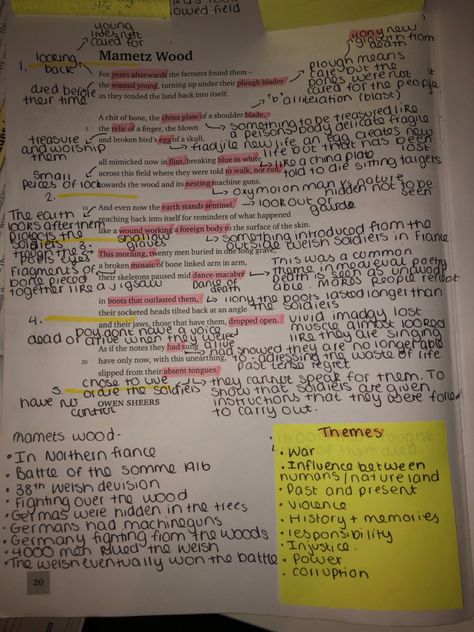 lowed field
young
lives not
cared for
irony new
growth from
death
looking
back
Mametz Wood
plough means
care but the
bones were not
cared for the people
1.
For years afterwards the farmers found them –
the wasted young, turning up under their plough blades
as they tended the land back into itself.
died before
their time
'b' alliteration (blast)
A chit of bone, the china plate of a shoulder blade,
the relic of a finger, the blown
and broken bird's egg of a skull,
something to be treasured like
a persons body delicate fragile
fragile new life an egg creates new
life but that has been
lost
treasure
and worship
them
all mimicked now in flint, breaking blue in white
across this field where they were told to walk, not run,
towards the wood and its nesting machine guns.
like a china plate
told to die sitting targets
small
pieces of rock
oxymoron man vs nature
hidden not to be
2.
10
And even now the earth stands sentinel,
reaching back into itself for reminders of what happened
like a wound working a foreign body to the surface of the skin.
look out or
guard
The earth
looks after them
protects the
soldiers
3.
shallow
graves
something introduced from the
outside welsh soldiers in france
This morning, twenty men buried in one long grave,
a broken mosaic of bone linked arm in arm,
their skeletons paused mid dance-macabre
Fragments of
bone pieced
together like a jigsaw
dance of
death
This was a common
theme in medieval poetry
death is seen as unavoid
able. makes people reflect
in boots that outlasted them,
their socketed heads tilted back at an angle
and their jaws, those that have them, dropped open.
irony the boots lasted longer than
the soldiers
vivid imagery lost
muscle almost looked
like they are singing
4.
pow dont have a voice
dead or alive when they were
alive
As if the notes they had sung
20
have only now, with this unearthing,
slipped from their absent tongues.
had showed they are no longer able
to. adressing the waste of life
past tense regret
5.
chose to use
orare the soldiers
OWEN SHEERS
have no
control
they cannot speak for them. To
show that soldiers are given
instructions that they were forced
to carry out.
mametz wood-
• In Northern france
• Battle of the somme 1916
• 38th welsh devision
• Fighting over the wood
• Germas were hidden in the trees
• Germans had machineguns
• Germany fighting from the woods
• 4000 men killed the welsh
• The welsh eventually won the battle
Themes
• War
• Influence between
humans/nature land
• Past and present
• Violence
• History + memories
• responsibility
• Injustice.
• Power
• corruption
20